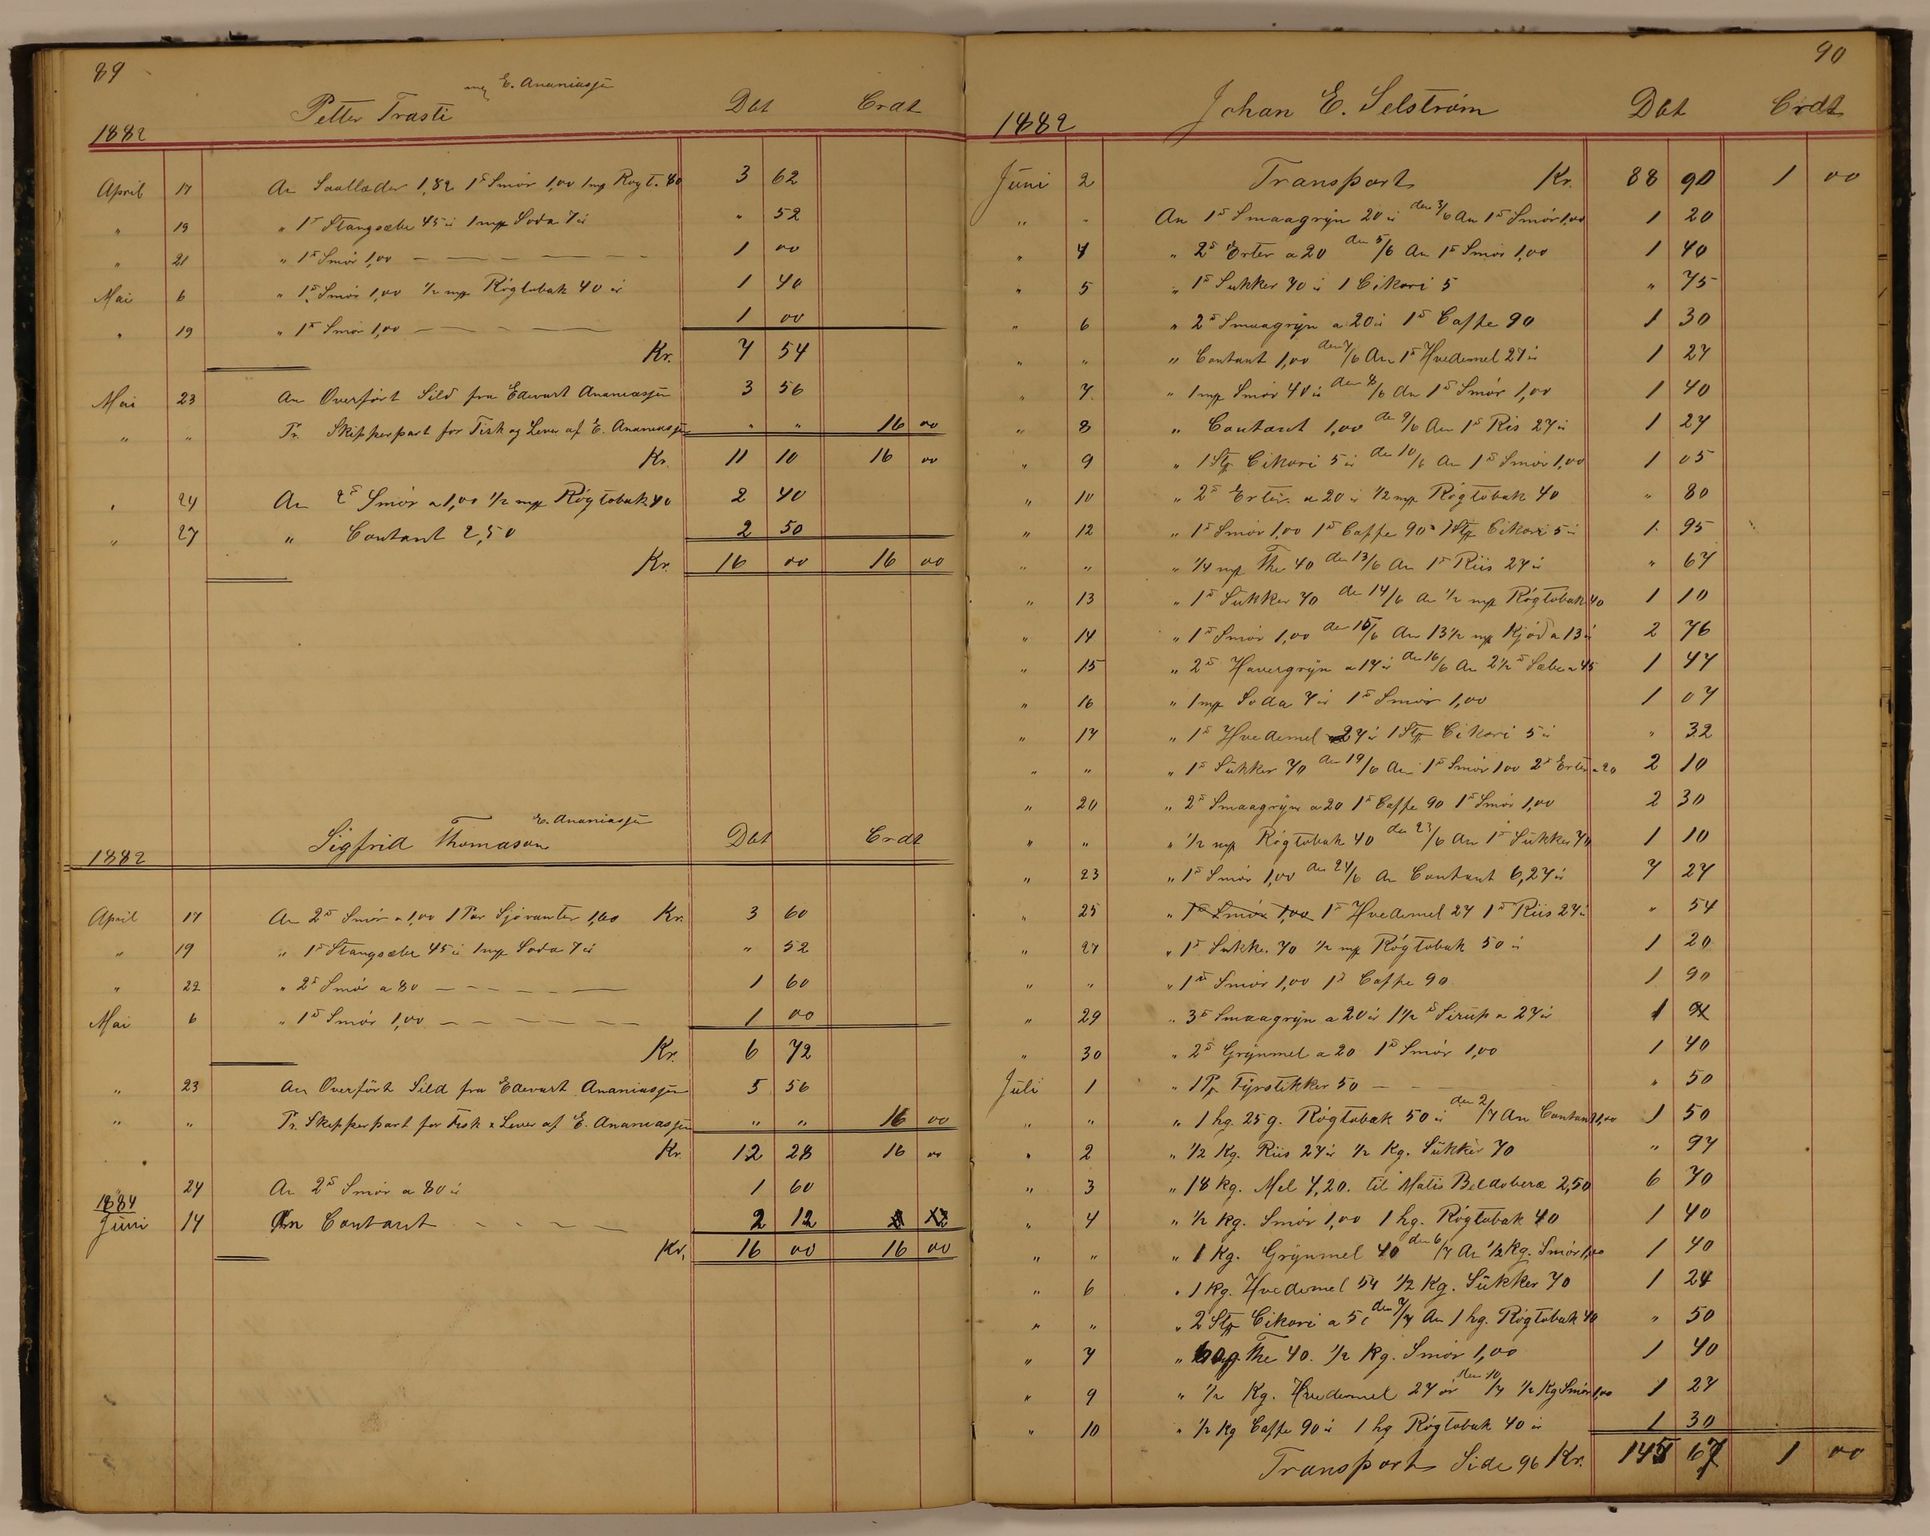 89
Petter Trasti E. Ananiassen Dbt Crdt
1882
April 17 An Saallæder 1,82 1 ℔ Smør 1,00 1 mp Røgt. 80 3 62
" 19 " 1 ℔ Stangsæbe 45 ør 1 mp Soda 7 ør " 52
" 21 " 1 ℔ Smør 1,00 1 00
Mai 6 " 1 ℔ Smør 1,00 1/2 mp Røgtobak 40 ør 1 40
" 19 " 1 ℔ Smør 1,00 1 00
Kr. 7 54
Mai 23 An Overført Sild fra Edevart Ananiassen 3 56
" " Pr. Skipperpart for Fisk og Lever af E. Ananiassen " " 16 00
Kr. 11 10 16 00
" 24 An 2 ℔ Smør a 1,00 1/2 mp Røgtobak 40 2 40
" 27 " Contant 2,50 2 50
Kr. 16 00 16 00
Sigfrid Thomasen E. Ananiassen Dbt Crdt
1882
April 17 An 2 ℔ Smør a 1,00 1 Par Sjøvanter 1,60 Kr. 3 60
" 19 " 1 ℔ Stangsæbe 45 ør 1 mp Soda 7 ør " 52
" 22 " 2 ℔ Smør a 80 1 60
Mai 6 " 1 ℔ Smør 1,00 1 00
Kr. 6 72
" 23 An Overført Sild fra Edevart Ananiassen 5 56
" " Pr. Skipperpart for Fisk & Lever af E. Ananiassen " " 16 00
Kr. 12 28 16 00
" 24 An 2 ℔ Smør a 80 ør 1 60
1884
Juni 14 An Contant 2 12
Kr. 16 00 16 00
90
1882 Johan E. Selstrøm Dbt Crdt
Juni 2 Transport Kr. 88 90 1 00
" " An 1 ℔ Smaagryn 20 ør den 3/6 An 1 ℔ Smør 1,00 1 20
" 4 " 2 ℔ Erter a 20 den 5/6 An 1 ℔ Smør 1,00 1 40
" 5 " 1 ℔ Sukker 70 ør 1 Cikori 5 " 75
" 6 " 2 ℔ Smaagryn a 20 ør 1 ℔ Caffe 90 1 30
" " " Contant 1,00 den 7/6 An 1 ℔ Hvedemel 27 ør 1 27
" 7 " 1 mp Smør 40 ør den 8/6 An 1 ℔ Smør 1,00 1 40
" 8 " Contant 1,00 den 9/6 An 1 ℔ Ris 27 ør 1 27
" 9 " 1 Stp Cikori 5 ør den 10/6 An 1 ℔ Smør 1,00 1 05
" 10 " 2 ℔ Erter a 20 ør 1/2 mp Røgtobak 40 " 80
" 12 " 1 ℔ Smør 1,00 1 ℔ Caffe 90 1 Stp Cikori 5 ør 1 95
" " " 1/4 mp The 40 den 13/6 An 1 ℔ Riis 27 ør " 67
" 13 " 1 ℔ Sukker 70 den 14/6 An 1/2 mp Røgtobak 40 1 10
" 14 " 1 ℔ Smør 1,00 den 15/6 An 13 1/2 mp Kjød a 13 ør 2 76
" 15 " 2 ℔ Havergryn a 17 ør den 16/6 An 2 1/2 ℔ Sæbe a 45 1 47
" 16 " 1 mp Soda 7 ør 1 ℔ Smør 1,00 1 07
" 17 " 1 ℔ Hvedemel 27 ør 1 Stp Cikori 5 ør " 32
" " " 1 ℔ Sukker 70 den 19/6 An 1 ℔ Smør 1,00 2 ℔ Erter a 20 2 10
" 20 " 2 ℔ Smaagryn a 20 1 ℔ Caffe 90 1 ℔ Smør 1,00 2 30
" " " 1/2 mp Røgtobak 40 den 23/6 An 1 ℔ Sukker 70 1 10
" 23 " 1 ℔ Smør 1,00 den 24/6 An Contant 6,27 ør 7 27
" 25 " 1 ℔ Smør 1,00 1 ℔ Hvedemel 27 1 ℔ Riis 27 ør " 54
" 27 " 1 ℔ Sukke. 70 1/2 mp Røgtobak 50 ør 1 20
" " " 1 ℔ Smør 1,00 1 ℔ Caffe 90 1 90
" 29 " 3 ℔ Smaagryn a 20 ør 1 1/2 ℔ Sirup a 27 ør 1
" 30 " 2 ℔ Grynmel a 20 1 ℔ Smør 1,00 1 40
Juli 1 " 1 Pk Fyrstikker 50 " 50
" " " 1 hg. 25 g. Røgtobak 50 ør den 2/7 An Contant 1,00 1 50
" 2 " 1/2 Kg. Riis 27 ør 1/2 Kg. Sukker 70 " 97
" 3 " 18 Kg. Mel 4,20. til Matis Beldovara 2,50 6 70
" 4 " 1/2 Kg. Smør 1,00 1 hg. Røgtobak 40 1 40
" " " 1 Kg. Grynmel 40 den 6/7 An 1/2 Kg. Smør 1,00 1 40
" 6 " 1 Kg. Hvedemel 54 1/2 Kg. Sukker 70 1 24
" " " 2 Stp Cikori a 5 den 7/7 An 1 hg. Røgtobak 40 " 50
" 7 " The 40. 1/2 Kg. Smør 1,00 1 40
" 9 " 1/2 Kg. Hvedemel 27 ør den 10/7 1/2 Kg Smør 1,00 1 27
" 10 " 1/2 Kg Caffe 90 ør 1 hg Røgtobak 40 ør 1 30
Transport Side 96 Kr. 145 67 1 00